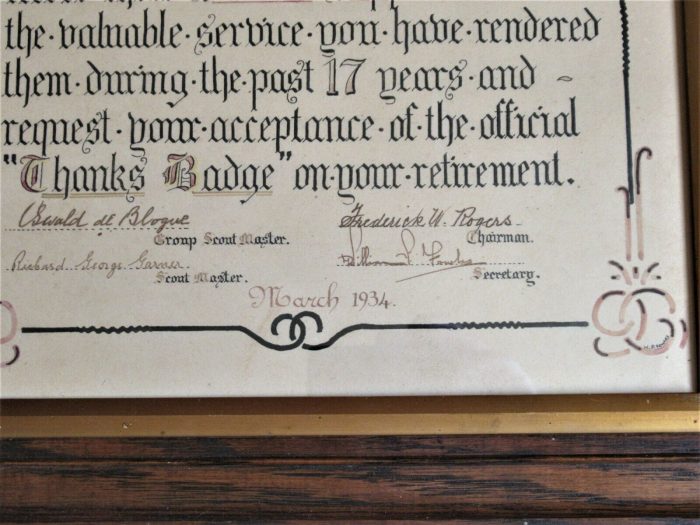 the·valuable·service·you·have·rendered
them·during·the·past 17 years·and -
request·your·acceptance·of·the·official
"Thanks Badge" on·your·retirement.
Oswald de Blogue Frederick W. Rogers
Group Scout Master. Chairman.
Richard George Garner William
Scout Master. Secretary.
March 1934.